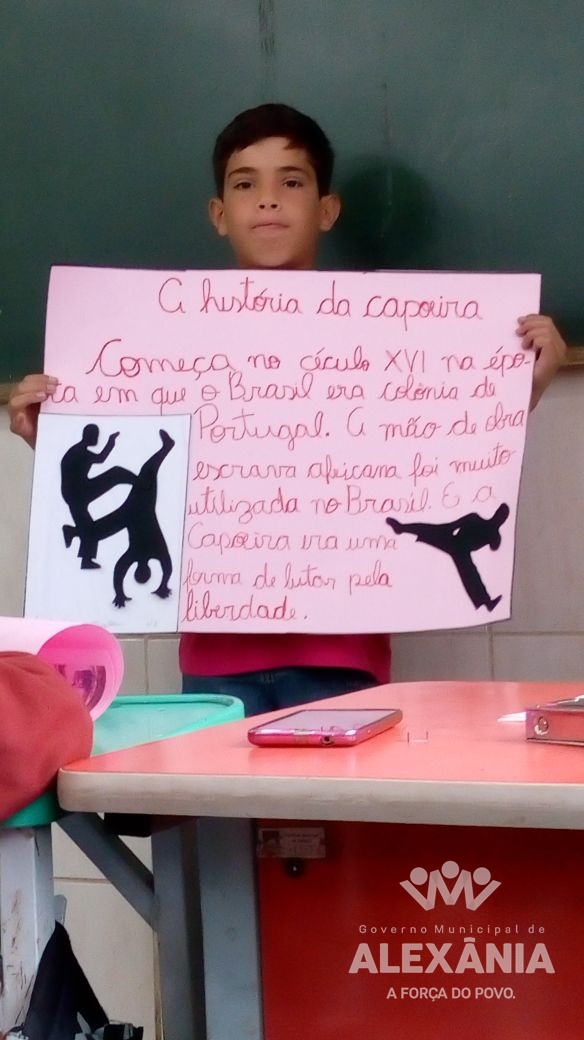 A história da capoeira
Começa no céculo XVI na épo-
ca em que o Brasil era colônia de
Portugal. A mão de obra
escrava africana foi muito
utilizada no Brasil. E a
Capoeira era uma
forma de lutar pela
liberdade.
Governo Municipal de
ALEXÂNIA
A FORÇA DO POVO.